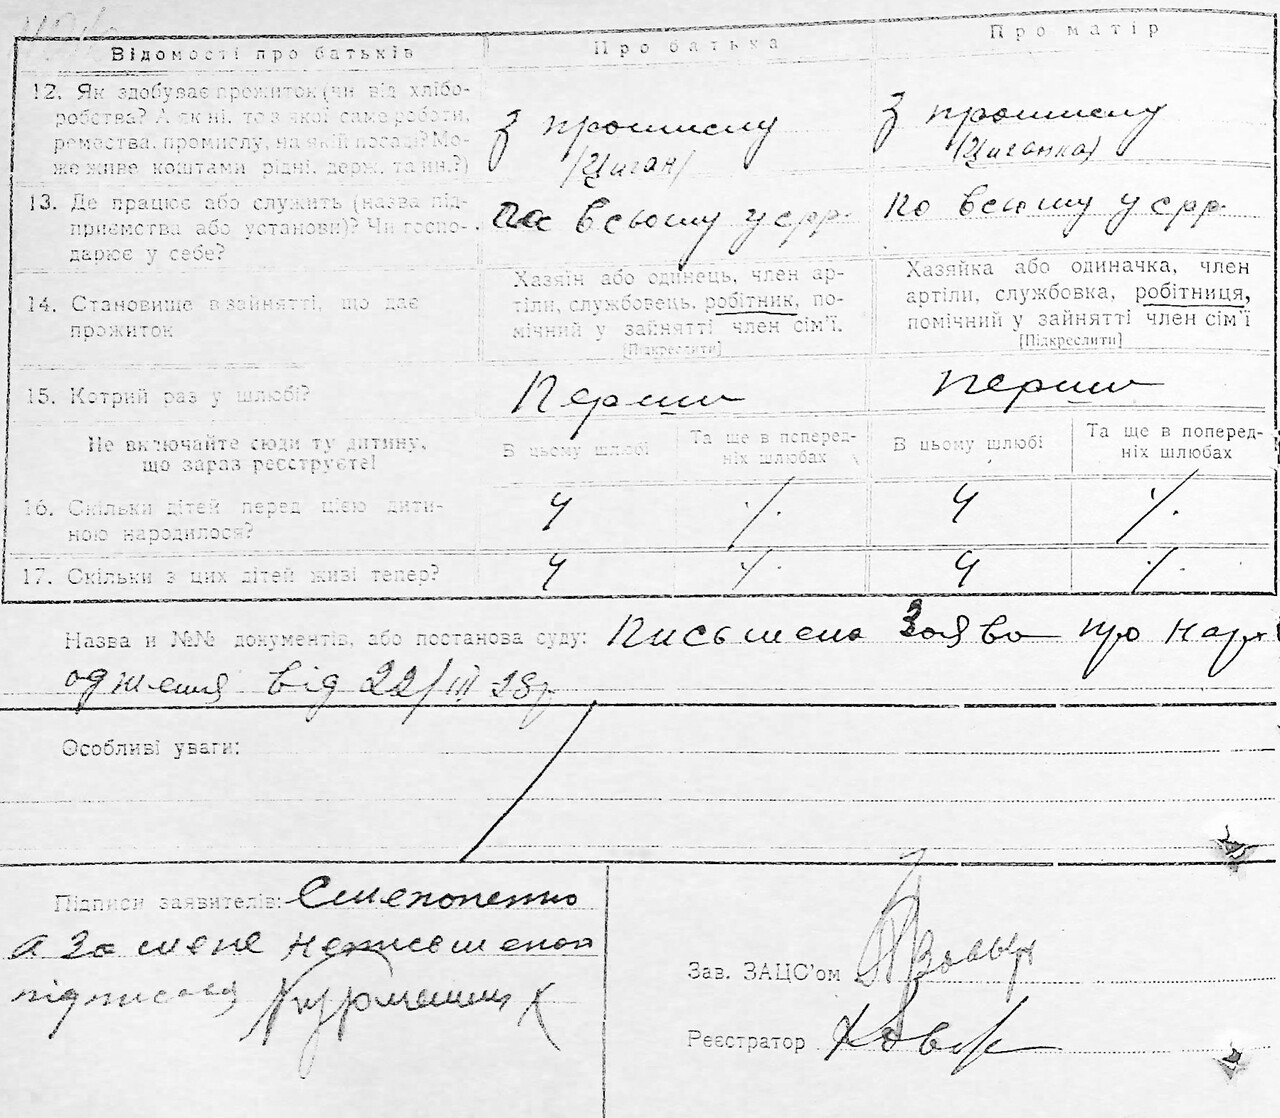 Відомості про батьків Про батька Про матір
12. Як здобуває прожиток (чи від хлібо-
робства? А як ні, то з якої саме роботи,
ремества, промислу, на якій посаді? Мо-
же живе коштами рідні, держ. та ин.?)
З промислу
(Циган)
З промислу
(Циганка)
13. Де працює або служить (назва під-
приємства або установи)? Чи госпо-
дарює у себе?
по всьому УСРР
по всьому УСРР
14. Становище в зайнятті, що дає
прожиток
Хазяїн або одинець, член ар-
тіли, службовець, робітник, по-
мічний у зайнятті член сім'ї.
[Підкреслити]
Хазяйка або одиначка, член
артіли, службовка, робітниця,
помічний у зайнятті член сім'ї
[Підкреслити]
15. Котрий раз у шлюбі?
Перший
Перший
Не включайте сюди ту дитину,
що зараз реєструєте!
В цьому шлюбі
Та ще в поперед-
ніх шлюбах
В цьому шлюбі
Та ще в поперед-
ніх шлюбах
16. Скільки дітей перед цією дити-
ною народилося?
4 ·/. 4 ·/.
17. Скільки з цих дітей живі тепер?
4 ·/. 4 ·/.
Назва и №№ документів, або постанова суду: Письмена Заява про нар
одження від 22/III 28р
Особливі уваги:
Підписи заявителів:
а за мене неписьменой
підписався
Зав. ЗАЦС'ом
Реєстратор